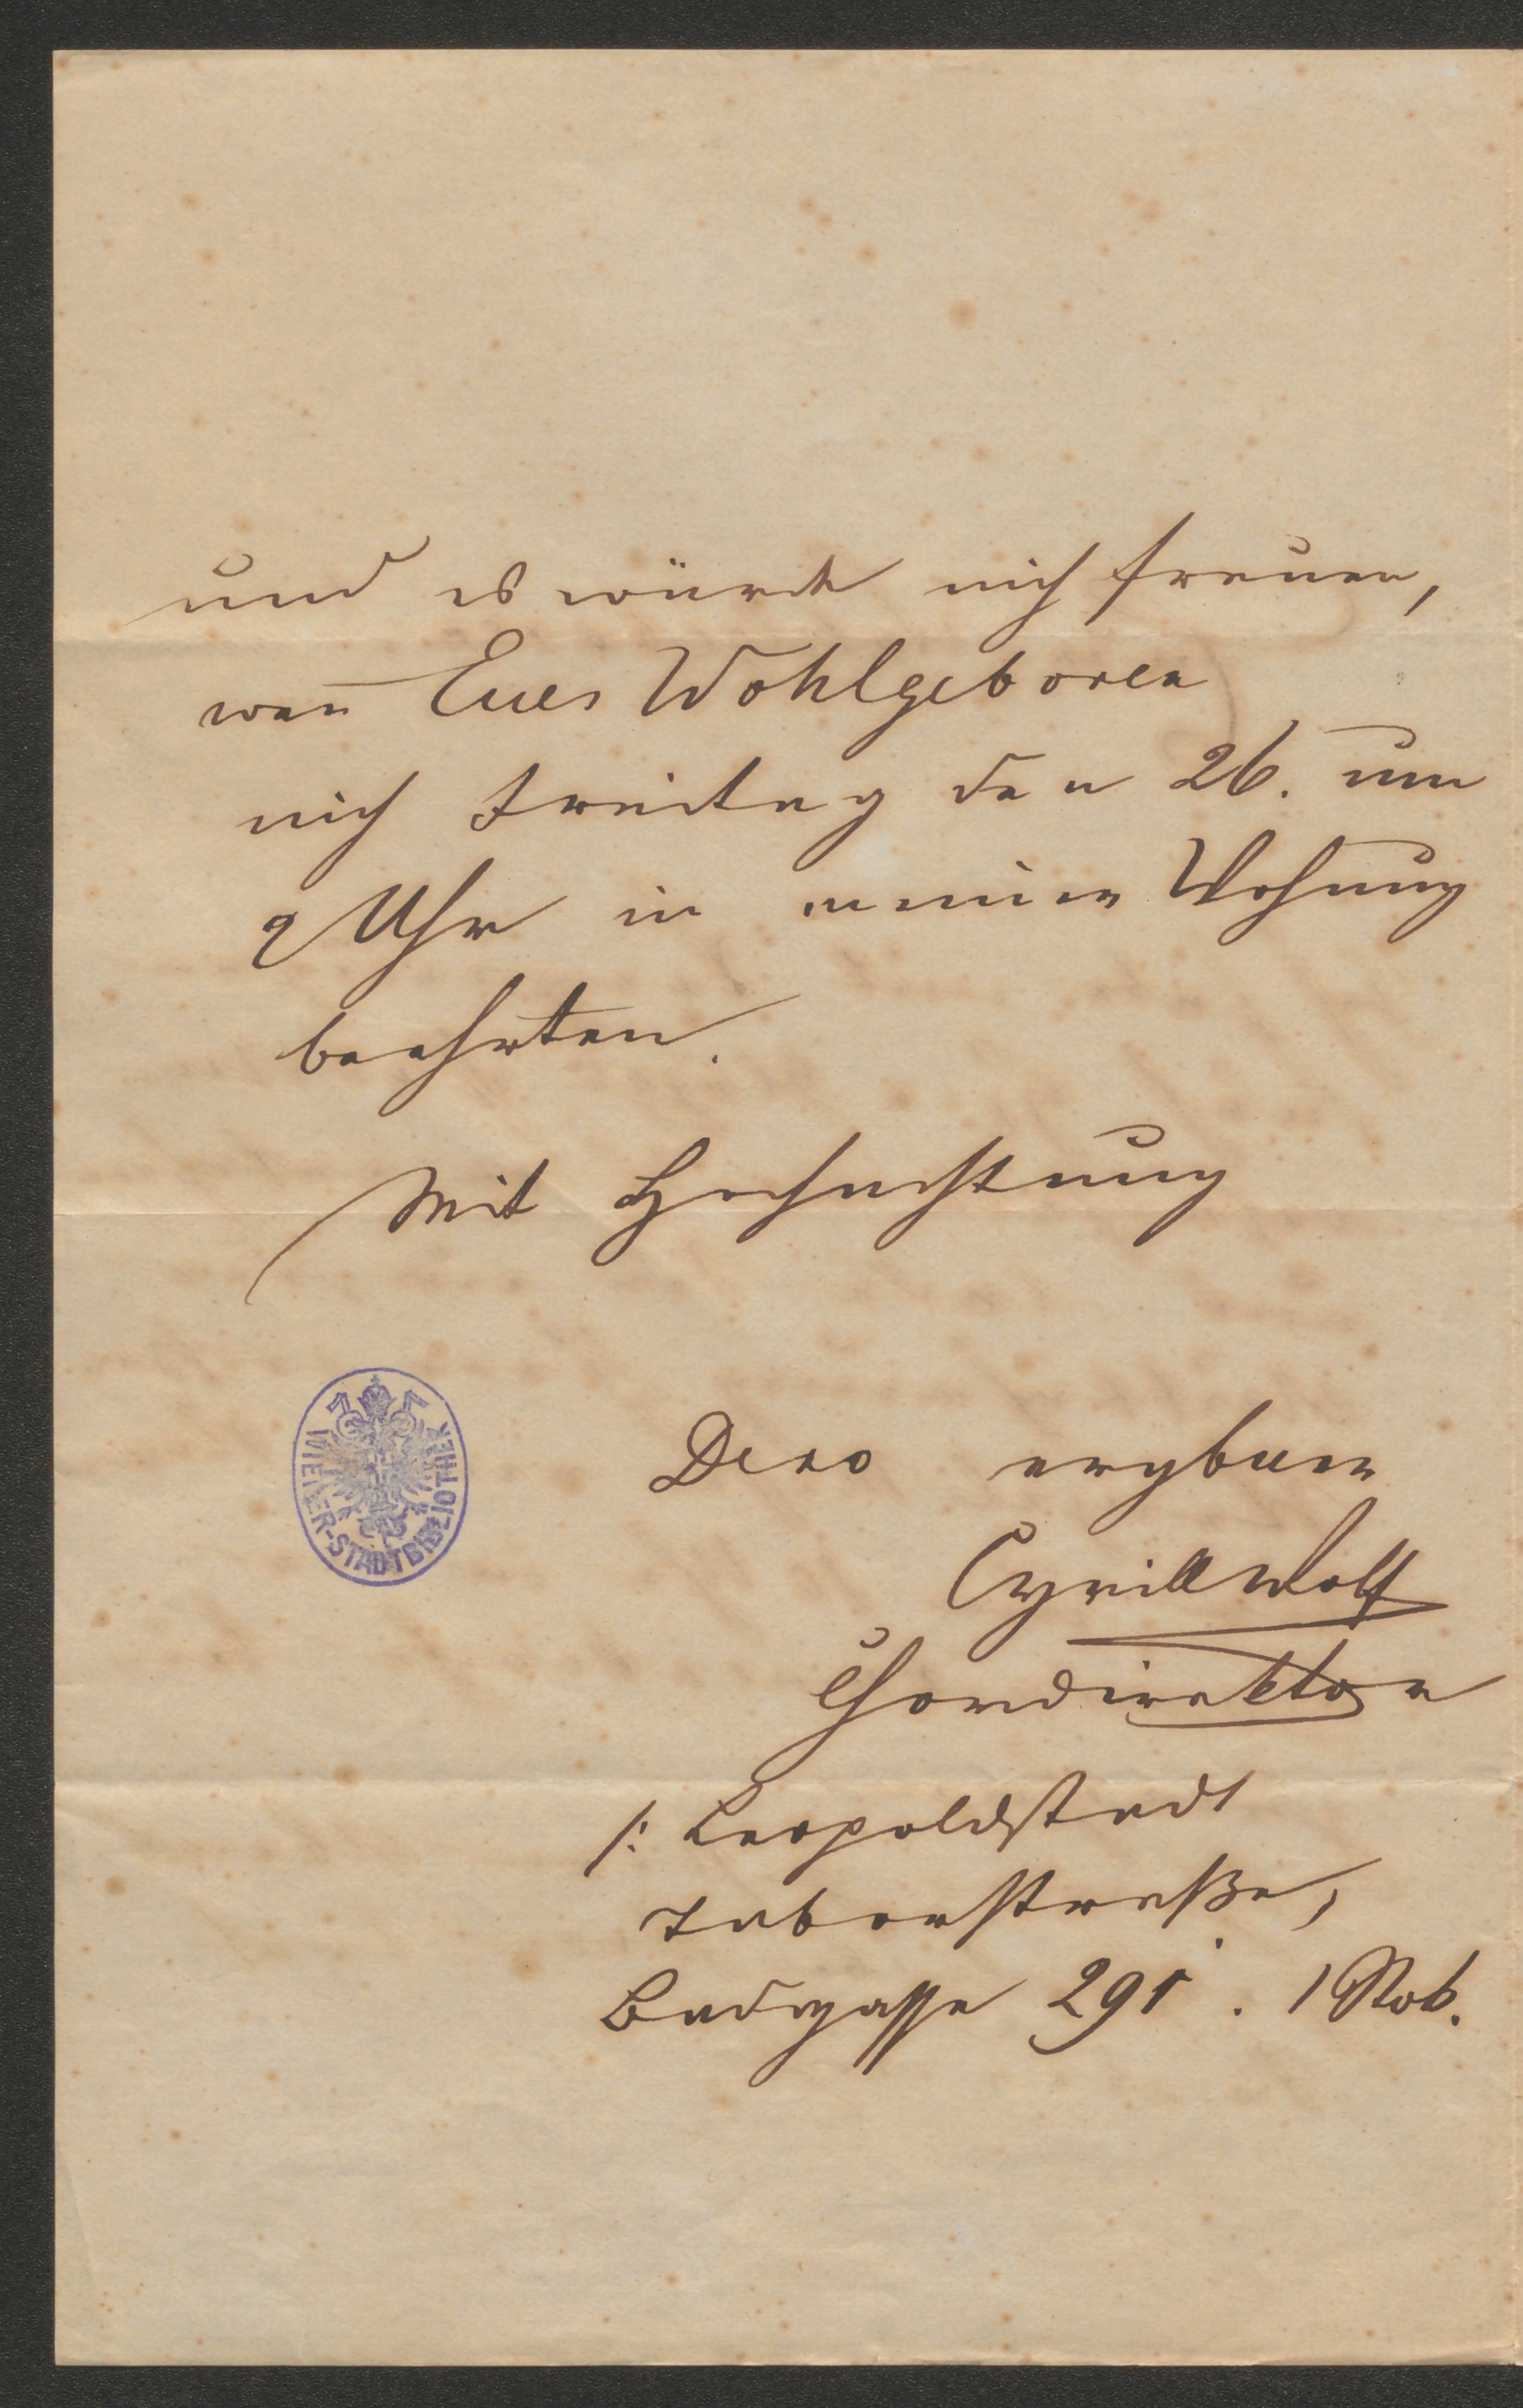 und es würde mich freuen,
wen̅ Euer Wohlgeboren
mich Freitag den 26. um
2 Uhr in meiner Wohnung
beehrten.
Mit Hochachtung
WIENER-STADTBIBLIOTHEK
Dero ergbener
Cyrill Wolf
Chordirektor
/: Leopoldstadt
Taborstraße,
Badgasse 291. 1 Stok.